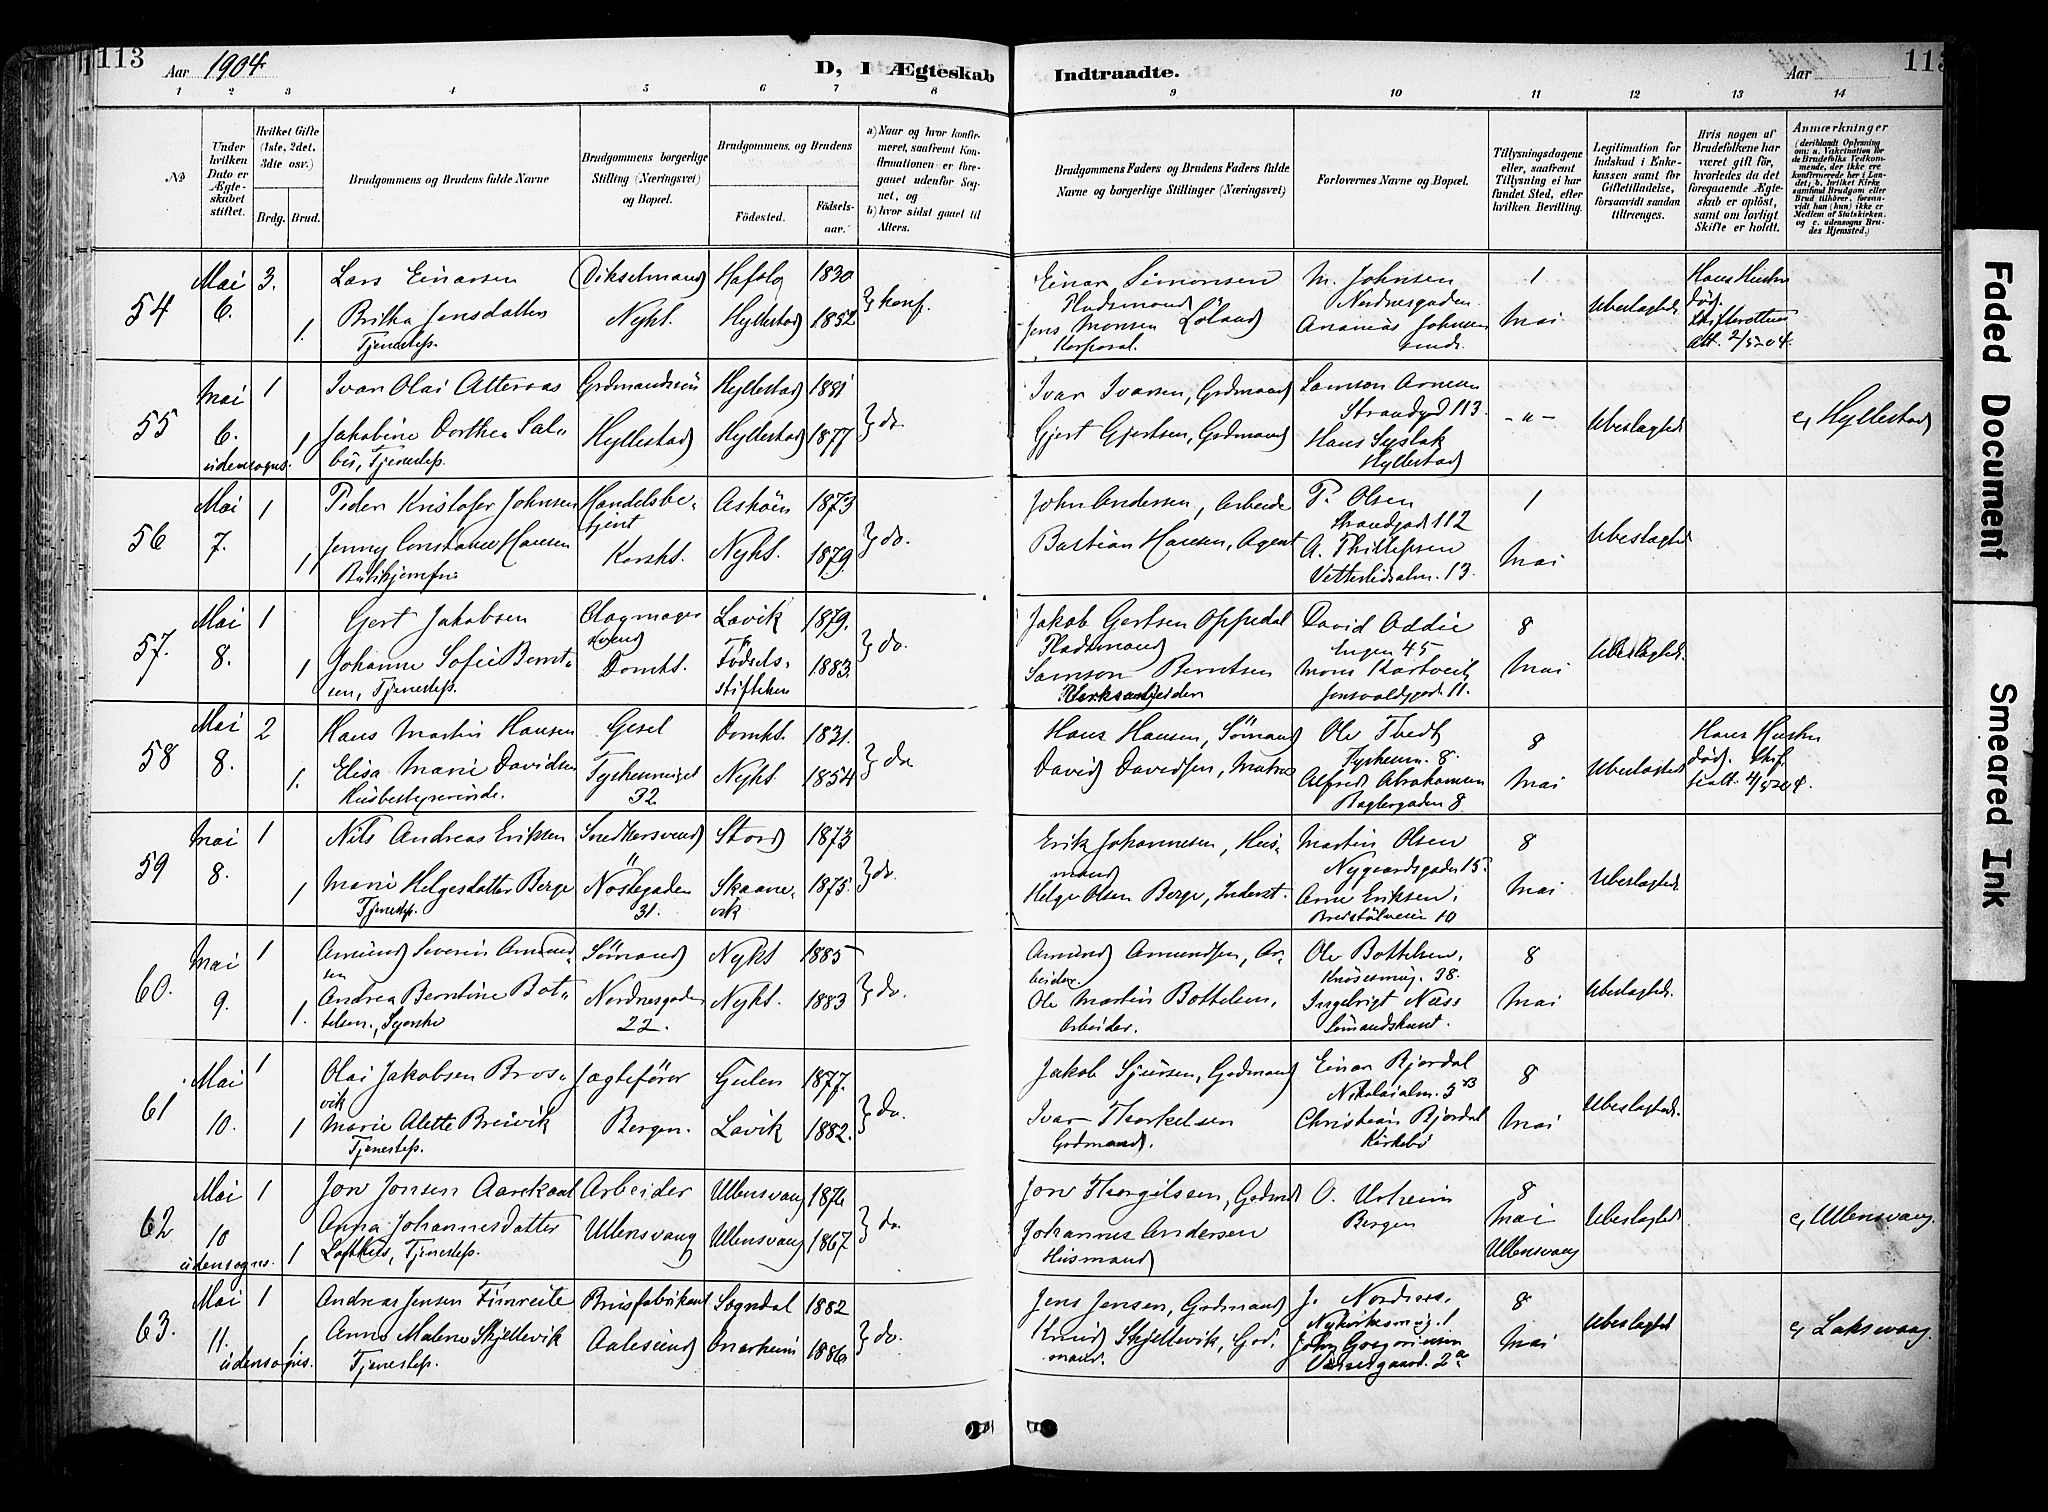 113
Aar 1904
D, I Ægteskab Indtraadte.
Aar
113
1 2 3 4 5 6 7 8 9 10 11 12 13 14
No
Under hvilken Dato er Ægteskabet stiftet.
Hvilket Gifte (1ste, 2det, 3die osv.)
Brdg. Brud.
Brudgommens og Brudens fulde Navne
Brudgommens borgerlige Stilling (Næringsvei) og Bopæl.
Brudgommens og Brudens
Fødested.
Fødselsaar.
a) Naar og hvor konfirmeret, saafremt Konfirmationen er foregaaet udenfor Sognet, og
b) hvor sidst gaaet til Alters.
Brudgommens Faders og Brudens Faders fulde Navne og borgerlige Stillinger (Næringsvei)
Forlovernes Navne og Bopæl.
Tillysningsdagene eller, saafremt Tillysning ei har fundet Sted, efter hvilken Bevilling.
Legitimation for Indskud i Enkekassen samt for Giftetilladelse, forsaavidt saadan tiltrænges.
Hvis nogen af Brudefolkene har været gift før, hvorledes da det foregaaende Ægteskab er opløst, samt om lovligt Skifte er holdt.
Anmærkninger
(deriblandt Oplysning om: a. Vaccination for de Brudefolks Vedkommende, der ikke ere konfirmerede her i Landet; b. hvilket Kirkesamfund Brudgom eller Brud tilhører, forsaavidt han (hun) ikke er Medlem af Statskirken, og c. udensogns Brudes Hjemsted.)
54 Mai 6. 3. 1.
Lars Einarsen
Britha Jensdatter
Tjenestep.
Nykt.
Hafslo 1830
Hyllestad 1852
} konf.
Einar Simonsen
Pladsmand
Jens Monsen Löland
Korporal.
M. Johnsen
Nordnesgaden
Ananias Johnsen
1 Mai
Ubeslægted
Hans Hustru død. Skifteretten att. 2/5 204.
55 Mai 6. udensogns. 1 1
Ivar Olai Atteraas
Jakobine Dorthea Salbu, Tjenestep.
Grdmandssøn
Hyllestad
Hyllestad 1881
Hyllestad 1877
} do.
Ivar Ivarsen, Grdmand
Gjert Gjertsen, Grdmand
Samson Arnesen
Strandgd 113.
Hans Syslak
Hyllestad
- " -
Ubeslægted
c, Hyllestad
56 Mai 7. 1 1
Peder Kristofer Johnsen
Jenny Constance Hansen
Handelsbetjent
Korskt.
Askøen 1873
Nykt. 1879.
} do.
John Andersen, Arbeide
Bastian Hansen, Agent
P. Olsen
Strandgad 112
A. Phillipsen
Vetterlidsalm. 13.
1 Mai
Ubeslægted
57. Mai 8. 1 1
Gert Jakobsen
Johanne Sofie Berntsen, Tjenestep.
Domkt.
Lavik 1879.
Fødselsstiftelsen 1883.
} do.
Jakob Gertsen Oppedal
Pladsmand
Samson Berntsen
David Addie
Engen 45
Mons Kartveit
8 Mai
Ubeslægted.
58 Mai 8. 2 1.
Hans Martin Hansen
Elisa Marie Davidsen
Husbestyrerinde.
Gesel
32
Domkt. 1831.
Nykt 1854
} do
Hans Hansen, Sømand
David Davidsen, Matros
Ole Tvedt
Alfred Abrahamsen
Baglergaden 8.
8 Mai
Ubeslægted
Hans Hustru død. Skifteatt. 4/5 204.
59 Mai 8. 1 1
Nils Andreas Eriksen
Marie Helgesdatter Berge
Tjenestep.
Snedkersvend
Nöstegaden 31.
Stord 1873
Skaanevik 1875.
} do.
Erik Johannesen, Husmand
Helge Olsen Berge, Inderst.
Martin Olsen
Nygaardsgaden 15.
Arne Eriksen,
Breistölveien 10
8 Mai
Ubeslægted.
60. Mai 9. 1 1.
Amund Severin Amundsen
Andrea Berntine Bottelsen, Syerske
Sømand
Nordnesgaden 22.
Nykt 1885
Nykt. 1883
} do.
Amund Amundsen, Arbeider
Ole Martin Bottelsen,
Arbeider.
Ole Bottelsen,
Knösesmug. 38.
Ingebrigt Næss
8 Mai
Ubeslægted.
61 Mai 10. 1 1
Olai Jakobsen Brosvik
Marie Alette Breivik
Tjenestep.
Jagtefører
Bergen.
Gulen 1877.
Lavik 1882.
} do.
Jakob Sjursen, Grdmand
Ivar Thorkelsen
Grdmand.
Einar Bjordal
Nikolaialm. 5
Christian Bjordal
Kirkebø
8 Mai
Ubeslægted.
62 Mai 10 udensogns. 1 1
Jon Jonsen Aarekaal
Anna Johannesdatter Lofthus, Tjenestep.
Arbeider
Ullensvang
Ullensvang 1876
Ullensvang 1867
} do.
Jon Thorgilsen, Grdmd
Johannes Andersen
Husmand
O. Urheim
Bergen
8 Mai
Ullensvang
Ubeslægted
c, Ullensvang.
63. Mai 11. udensogns. 1 1
Andreas Jensen Fimreite
Anna Malene Skjellevik
Tjenestep.
Brusfabrikant
Aalesund
Sogndal 1882
Onarheim 1886
} do.
Jens Jensen, Grdmand
Knud Skjellevik, Grdmand.
J. Nordnes.
Nykirkesmug. 1
John Gregoriussen
8 Mai
Ubeslægted
c, Laksevaag.
Faded Document
Smeared Ink